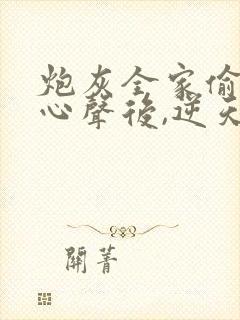 炮灰全家偷
心聲後,逆天
開菁